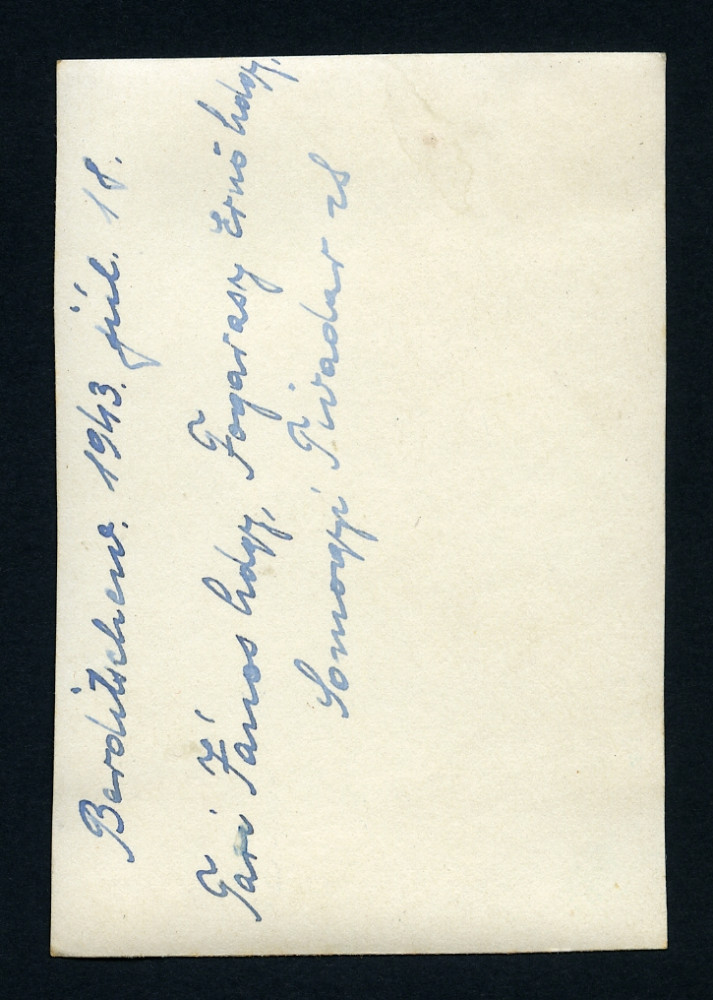 Berditschew. 1943. júl. 18.
Tari János hdgy, Fogarasy Ernő hdgy,
Somogyi Tivadar zls